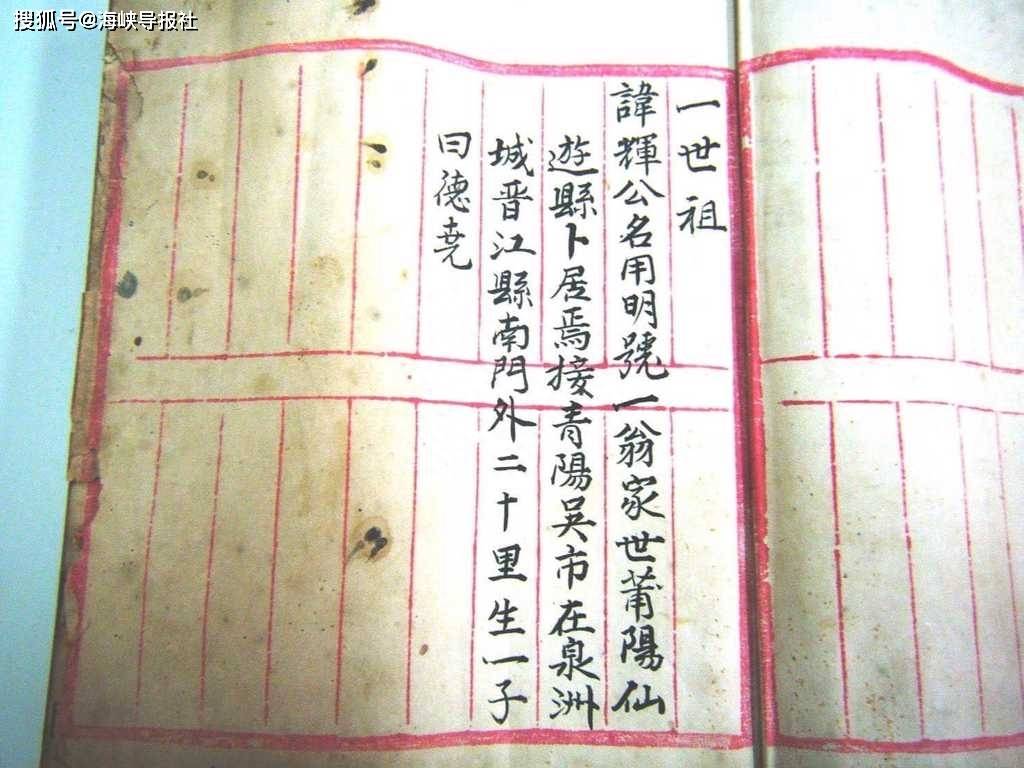 搜狐号@海峡导报社
一世祖
諱輝公名用明號一翁家世莆陽仙
遊縣卜居焉接青陽吳市在泉洲
城晋江縣南門外二十里生一子
曰德堯